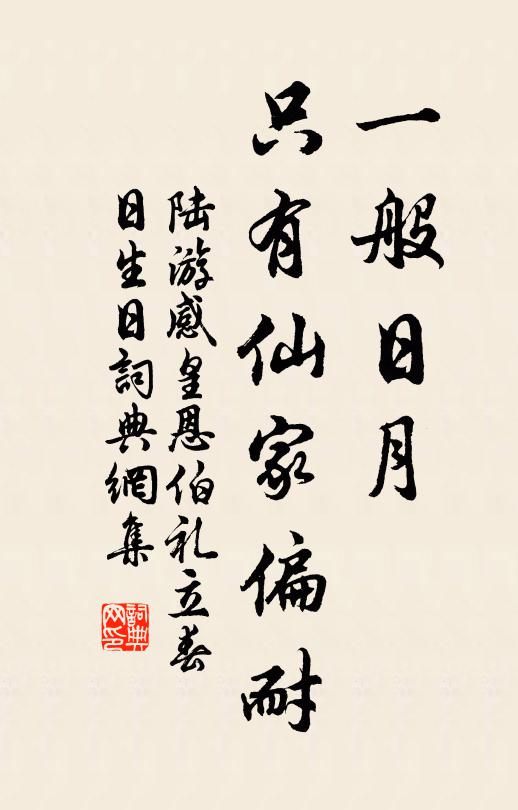 一般日月
只有仙家偏耐
陆游感皇恩伯礼立春
日生日詞典網集
詞典
网印